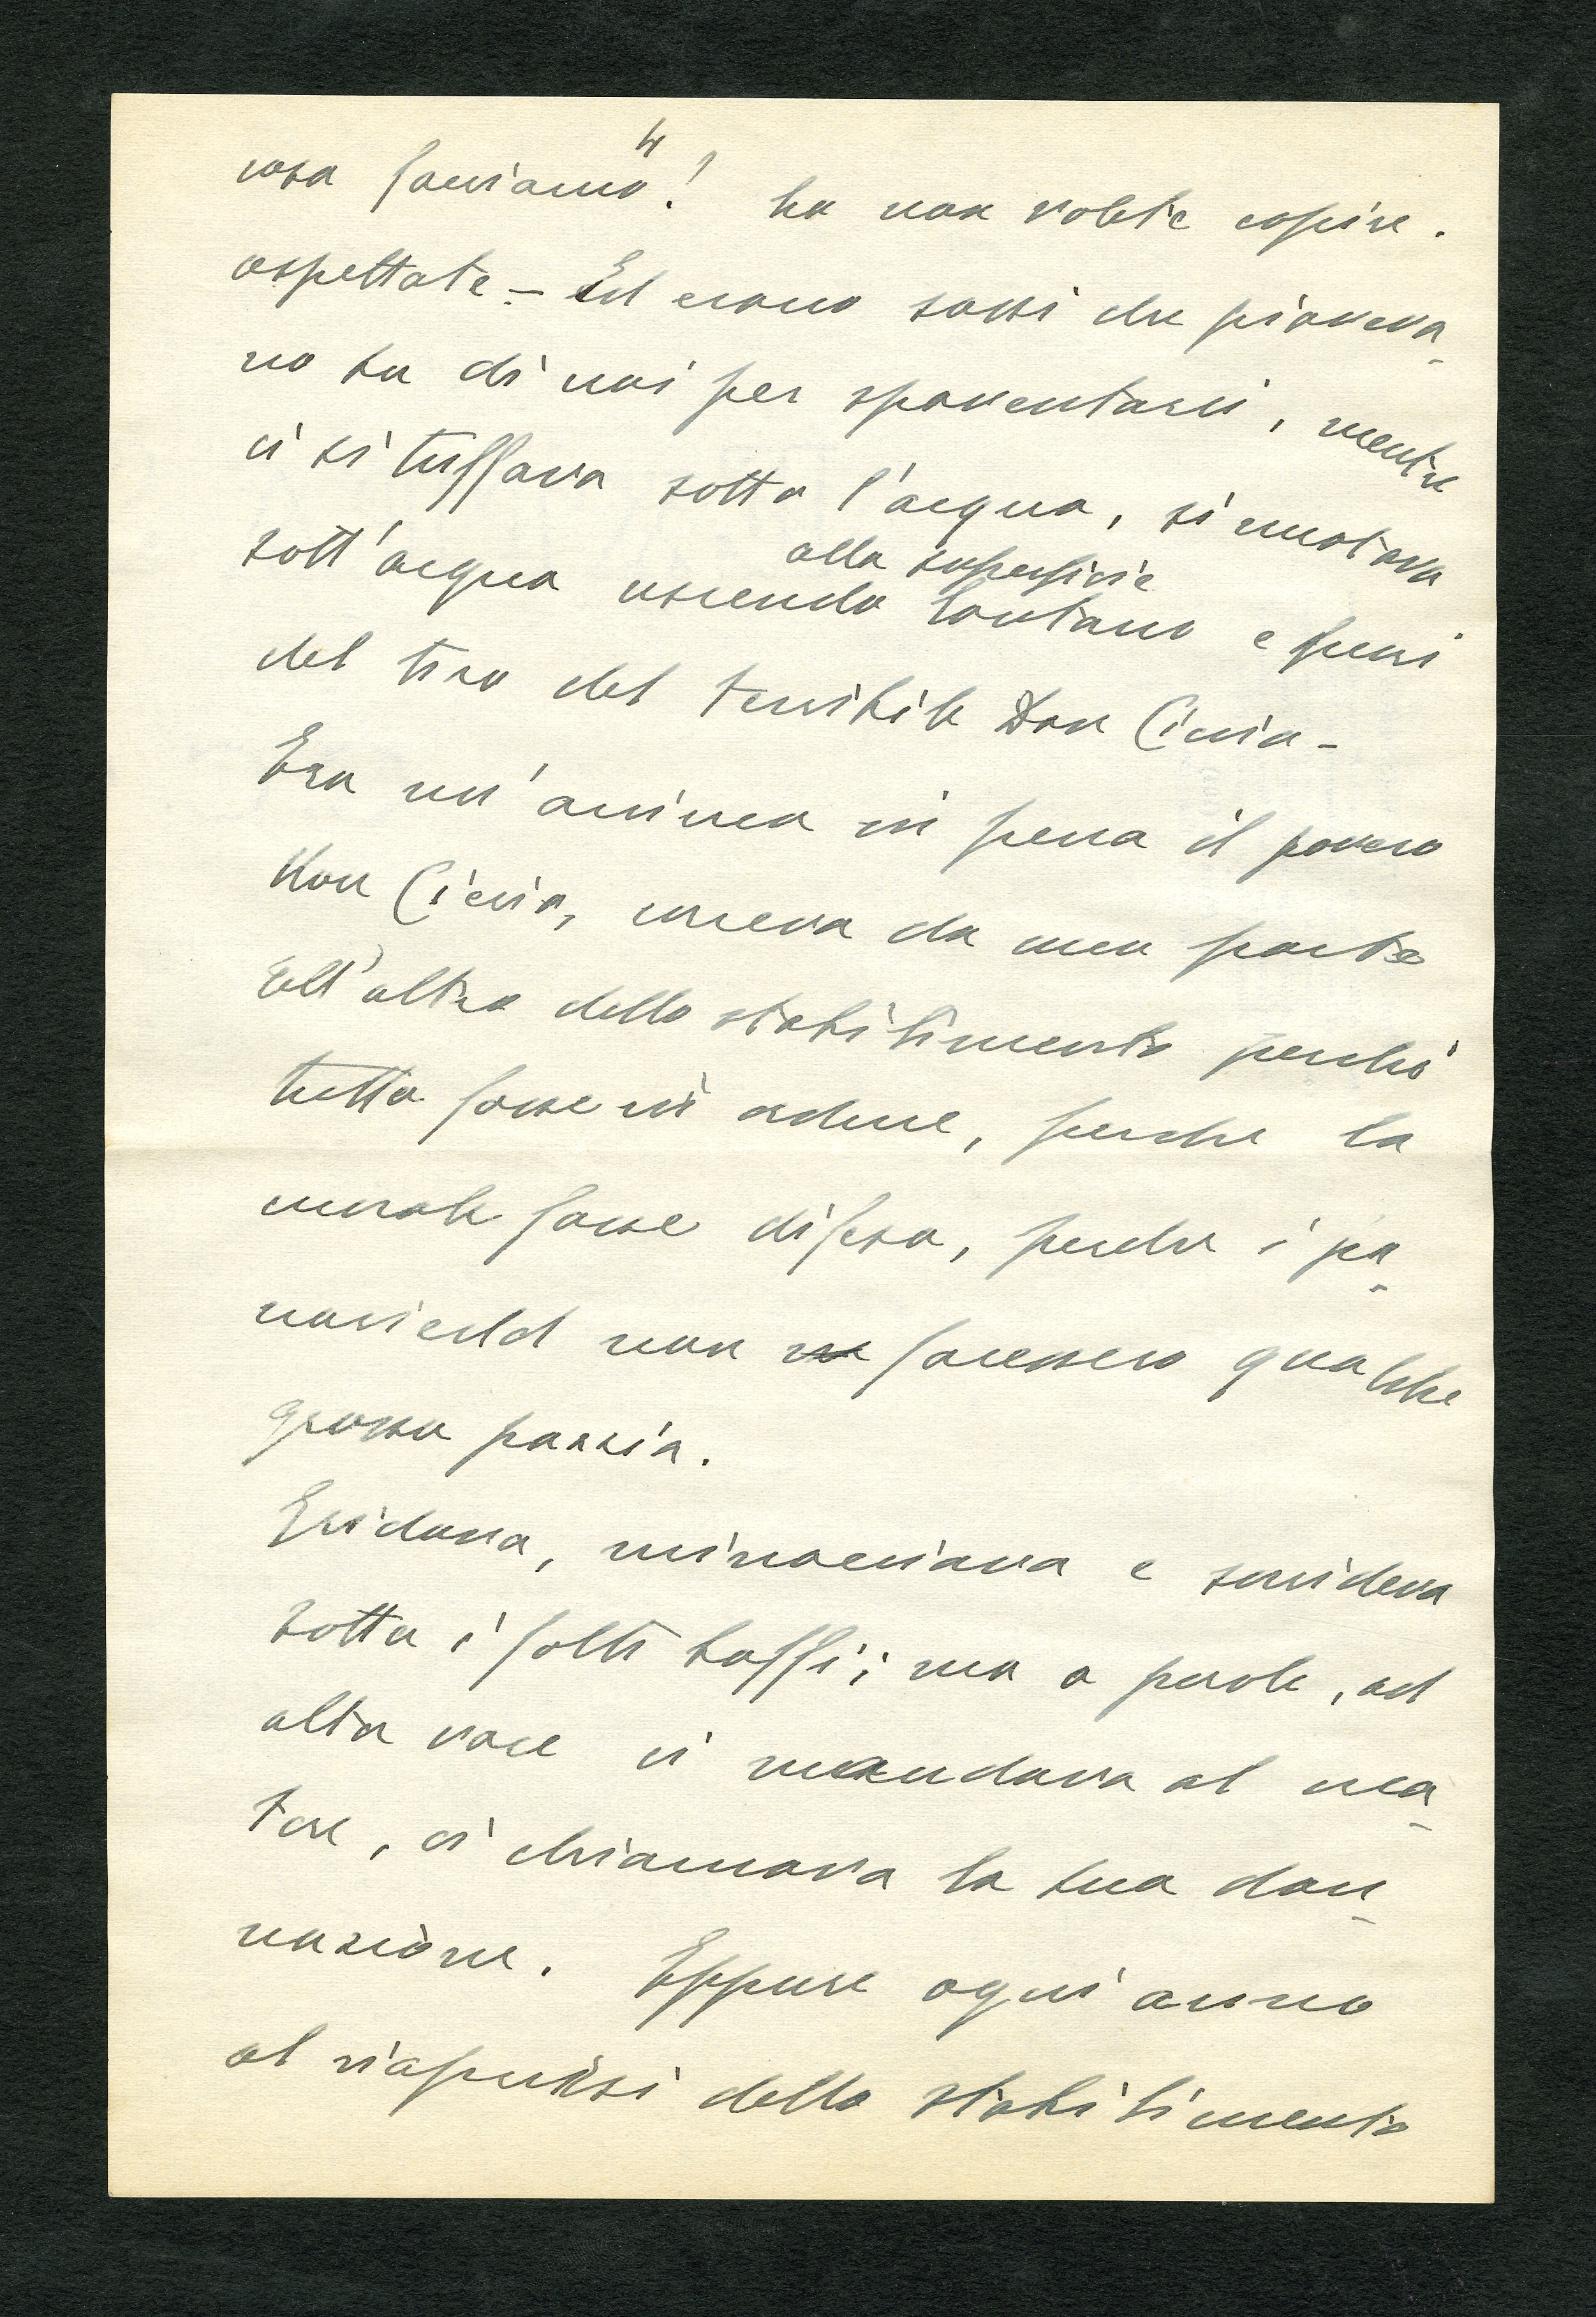 4
cosa facciamo! ha non volete capire.
aspettate - Ed erano sassi che pioveva-
no su di noi per spaventarci, mentre
ci si tuffava sotto l'acqua, si nuotava
alla superficie
sott'acqua uscendo lontano e fuori
del tiro del terribile Don Ciccio -
Era un'anima in pena il povero
Don Ciccio, correva da una parte
all'altra dello stabilimento perché
tutto fosse in ordine, perche la
morale fosse difesa, perche i pa-
noviechl non facessero qualche
grossa pazzia.
Gridava, minacciava e sorrideva
sotto i folti baffi; ma a parole, ad
alta voce ci mandava al ma-
tore, ci chiamava la sua dan-
nazione. Eppure ogni anno
al riaprirsi dello stabilimento